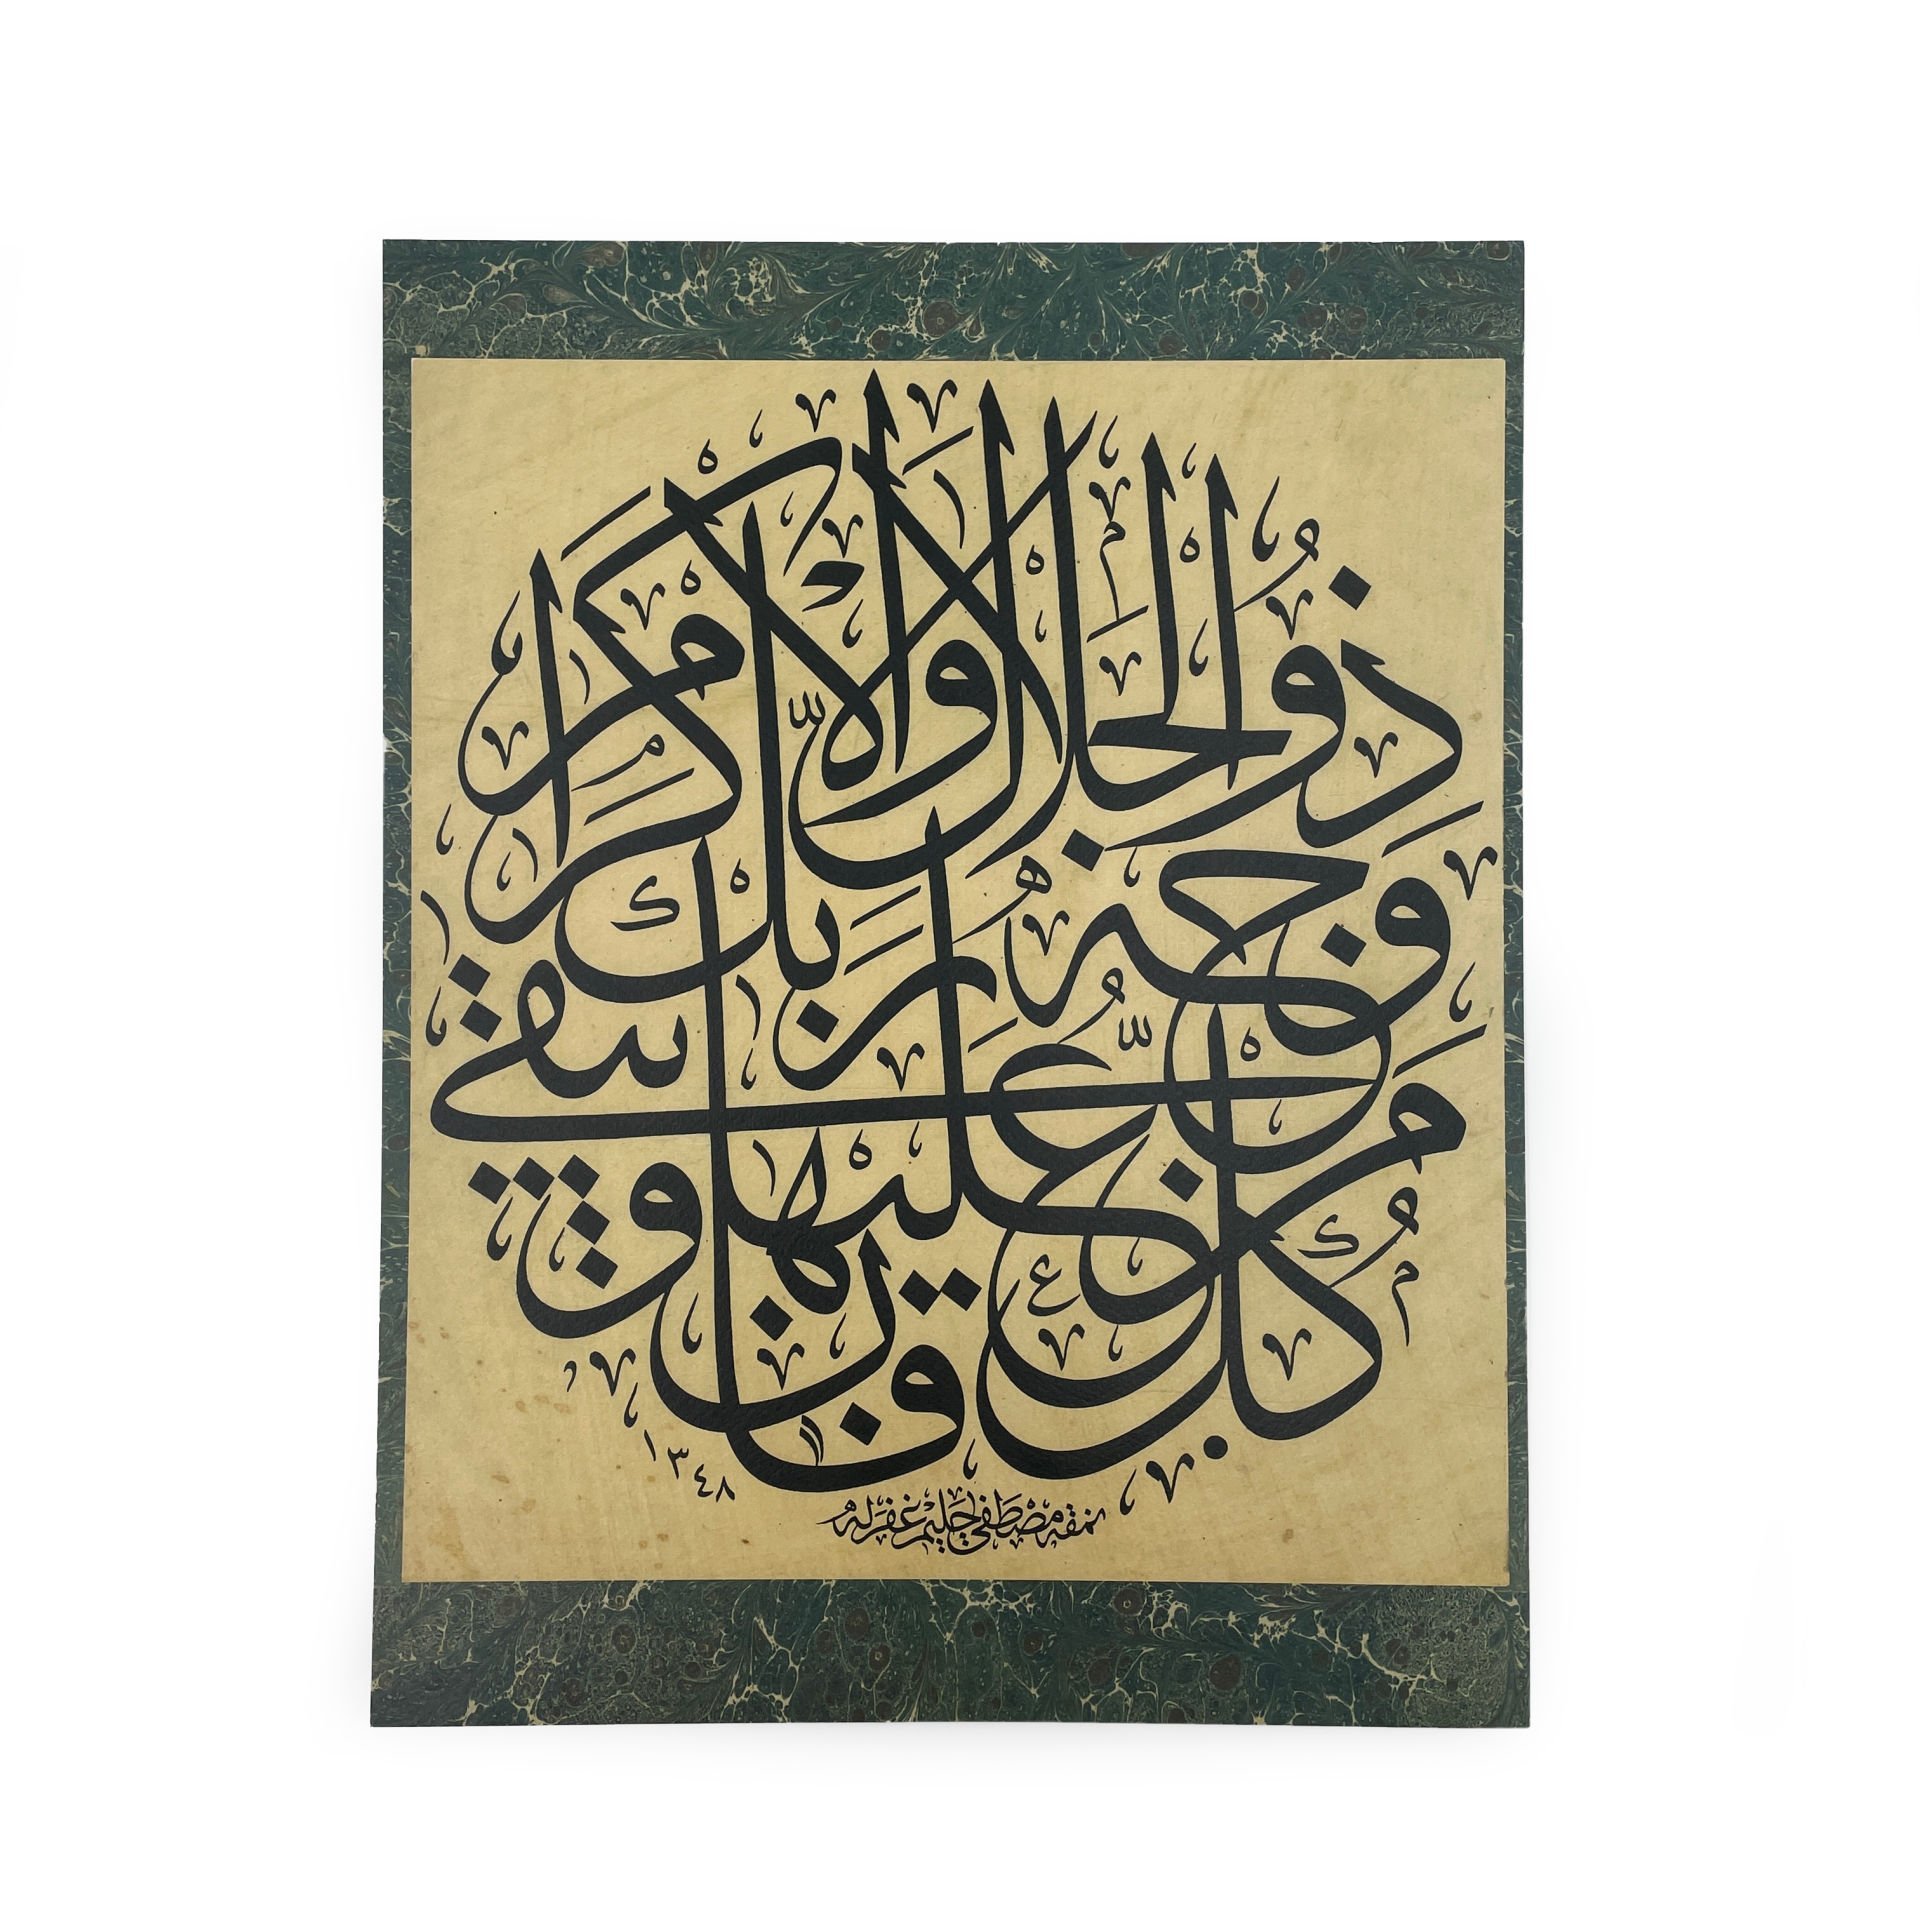 كُلُّ مَنْ عَلَيْهَا فَانٍ وَيَبْقَى
وَجْهُ رَبِّكَ
ذُو الْجَلَالِ وَالْإِكْرَامِ
١٣٤٨
نمقه مصطفى حليم غفر له